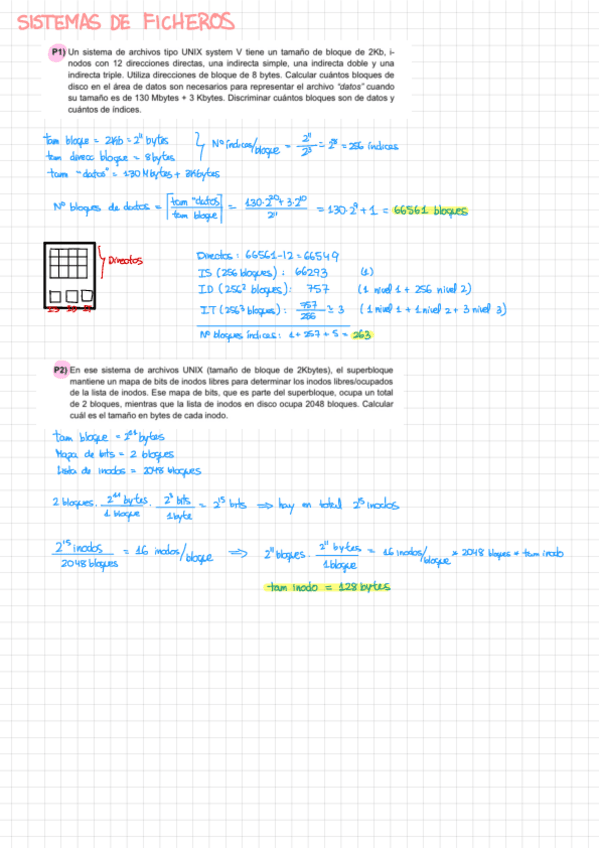 SISTEMAS DE FICHEROS
P1) Un sistema de archivos tipo UNIX system V tiene un tamaño de bloque de 2Kb, i-
nodos con 12 direcciones directas, una indirecta simple, una indirecta doble y una
indirecta triple. Utiliza direcciones de bloque de 8 bytes. Calcular cuántos bloques de
disco en el área de datos son necesarios para representar el archivo "datos" cuando
su tamaño es de 130 Mbytes + 3 Kbytes. Discriminar cuántos bloques son de datos y
cuántos de índices.
tam bloque = 2Kb = 2¹¹ bytes
tam direcc bloque = 8 bytes
tam "datos" = 130 Mbytes + 3Kbytes
Nº índices/bloque = 2¹¹/2³ = 2⁸ = 256 índices
Nº bloques de datos = ⌈tam "datos"/tam bloque⌉ = 130·2²⁰+3·2¹⁰/2¹¹ = 130·2⁹+1 = 66561 bloques
Directos
Directos: 66561-12 = 66549
IS (256 bloques): 66293 (1)
ID (256² bloques): 757 (1 nivel 1 + 256 nivel 2)
IT (256³ bloques): 757/256 ≅ 3 (1 nivel 1 + 1 nivel 2 + 3 nivel 3)
Nº bloques índices: 1+257+5 = 263
P2) En ese sistema de archivos UNIX (tamaño de bloque de 2Kbytes), el superbloque
mantiene un mapa de bits de inodos libres para determinar los inodos libres/ocupados
de la lista de inodos. Ese mapa de bits, que es parte del superbloque, ocupa un total
de 2 bloques, mientras que la lista de inodos en disco ocupa 2048 bloques. Calcular
cuál es el tamaño en bytes de cada inodo.
tam bloque = 2¹¹ bytes
Mapa de bits = 2 bloques
Lista de inodos = 2048 bloques
2 bloques · 2¹¹ bytes/1 bloque · 2³ bits/1 byte = 2¹⁵ bits ⟹ hay en total 2¹⁵ inodos
2¹⁵ inodos/2048 bloques = 16 inodos/bloque ⟹ 2¹¹ bloques · 2¹¹ bytes/1 bloque = 16 inodos/bloque * 2048 bloques * tam inodo
tam inodo = 128 bytes